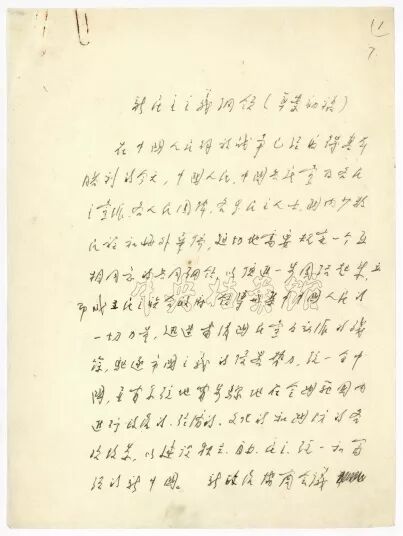 11
7.
新民主主义纲领（草案初稿）
在中国人民解放战争已经取得基本
胜利的今天，中国人民、中国共产党及各民
主党派、各人民团体、各界民主人士、国内少数
民族和海外华侨，迫切地需要规定一个互
相同意的共同纲领，以便进一步团结起来
一切力量，迅速肃清国民党反动派的残
余，驱逐帝国主义的侵略势力，统一全中
国，并有系统地有步骤地在全国范围内
进行政治的、经济的、文化的和国防的各
项改革，以建设独立、自由、民主、统一和富
强的新中国。新政治协商会议
中央档案馆